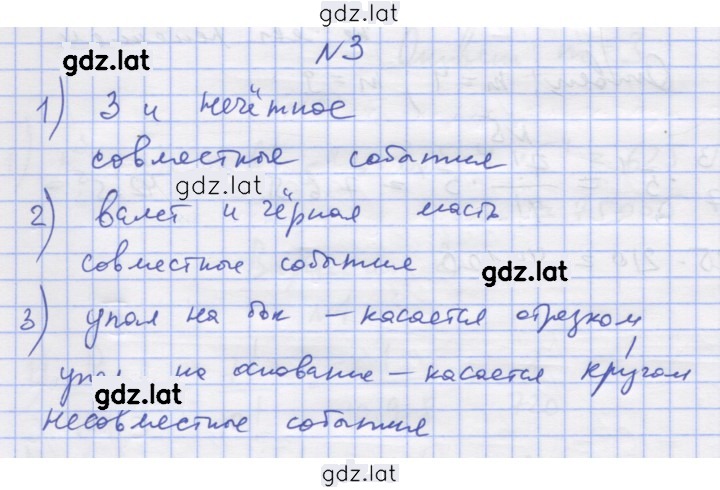 gdz.lat
№3
gdz.lat
1) 3 и нечётное
совместные события
gdz.lat
2) валет и чёрная масть
совместные события
gdz.lat
3) упал на бок – касается отрезком
на основание – касается кругом
gdz.lat
несовместные события
gdz.lat